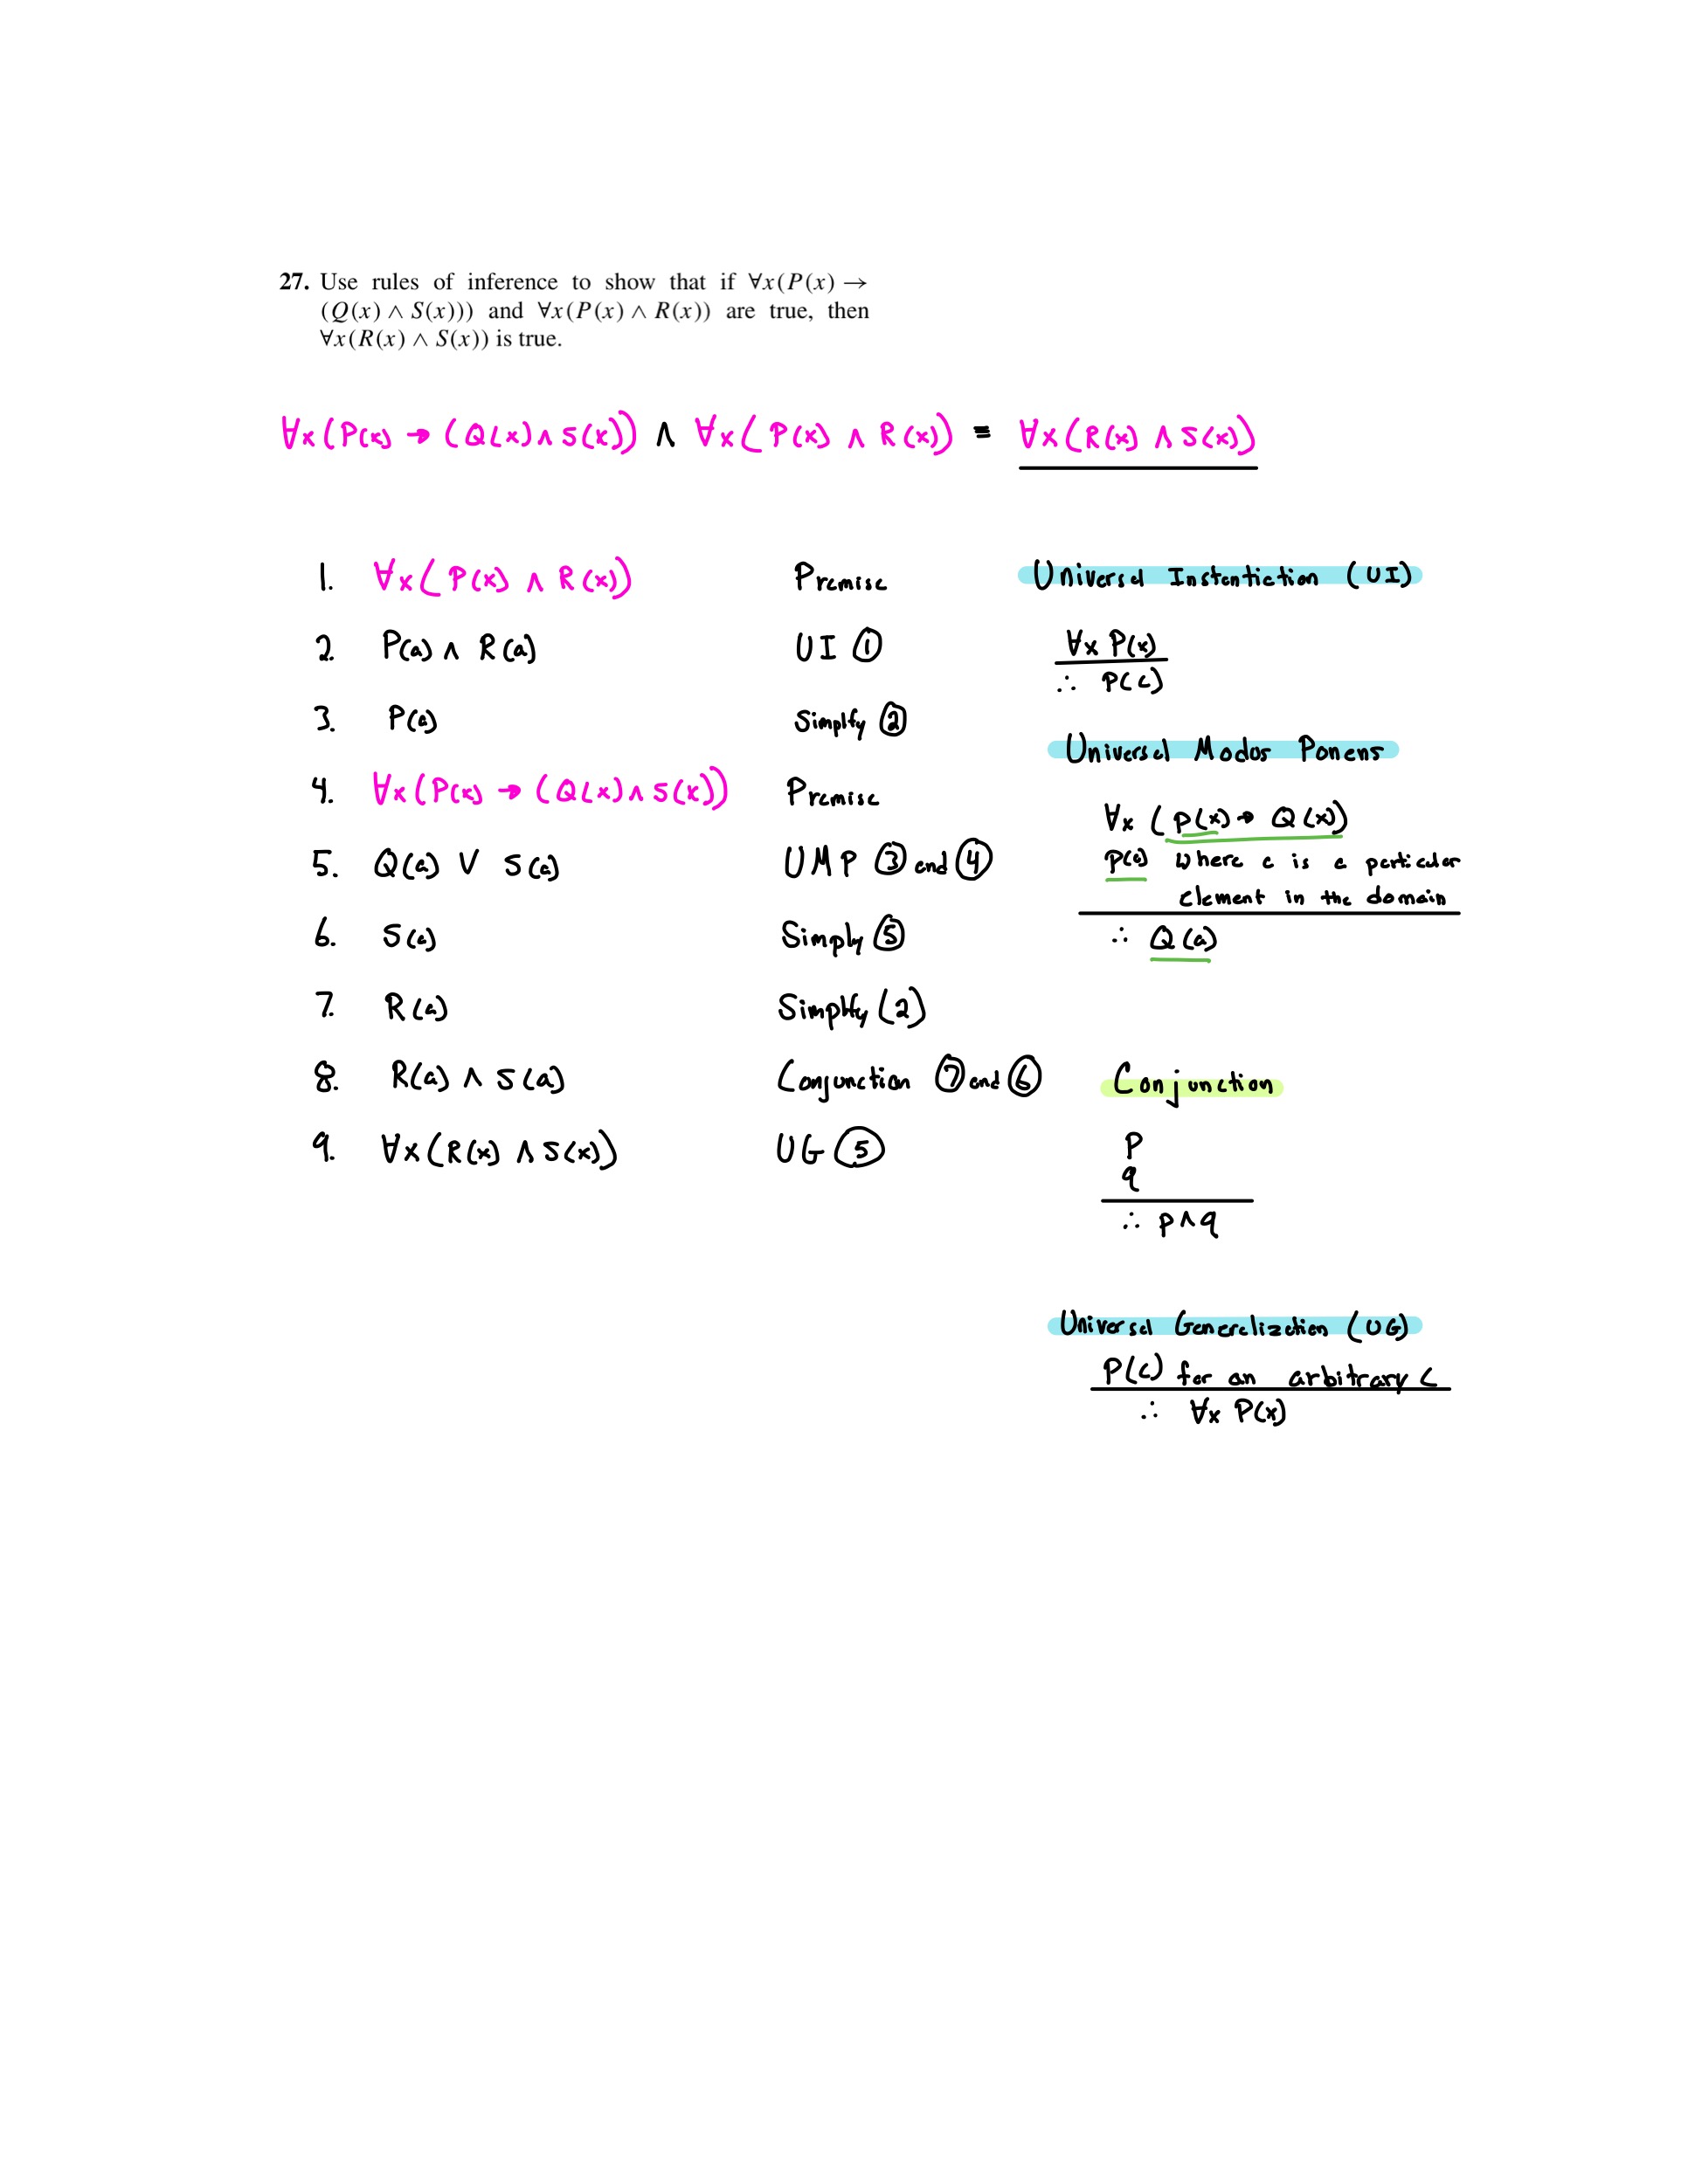 27. Use rules of inference to show that if ∀x(P(x) →
(Q(x) ∧ S(x))) and ∀x(P(x) ∧ R(x)) are true, then
∀x(R(x) ∧ S(x)) is true.
∀x(P(x) → (Q(x) ∧ S(x)) ∧ ∀x(P(x) ∧ R(x)) ≡ ∀x(R(x) ∧ S(x))
1. ∀x(P(x) ∧ R(x)) Premise
2. P(a) ∧ R(a) UI ①
3. P(a) Simplfy ②
4. ∀x(P(x) → (Q(x) ∧ S(x)) Premise
5. Q(a) ∨ S(a) UMP ③ and ④
6. S(a) Simply ⑤
7. R(a) Simplify (2)
8. R(a) ∧ S(a) Conjunction ⑦ and ⑥
9. ∀x(R(x) ∧ S(x)) UG ⑤
Universal Instantiction (UI)
∀x P(x)
∴ P(c)
Universal Modus Ponens
∀x (P(x) → Q(x))
P(a) where a is a particular
element in the domain
∴ Q(a)
Conjunction
P
q
∴ p∧q
Universal Generalization (UG)
P(c) for an arbitrary c
∴ ∀x P(x)